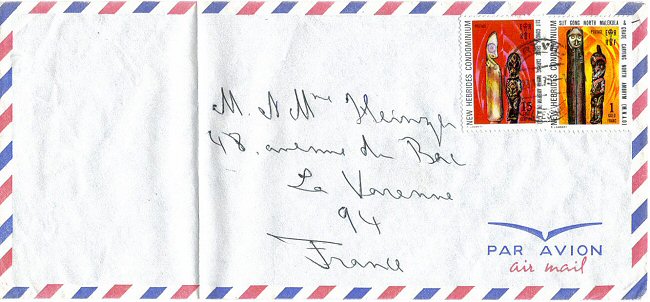 NEW HEBRIDES CONDOMINIUM
15
NEW HEBRIDES CONDOMINIUM
SLIT GONG NORTH MALEKULA
POSTAGE
1
GOLD
FRANC
M. & Mme Heinzer
48. avenue du Bac
La Varenne
94
France
PAR AVION
air mail